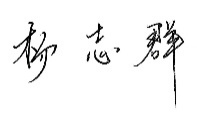 杨志群